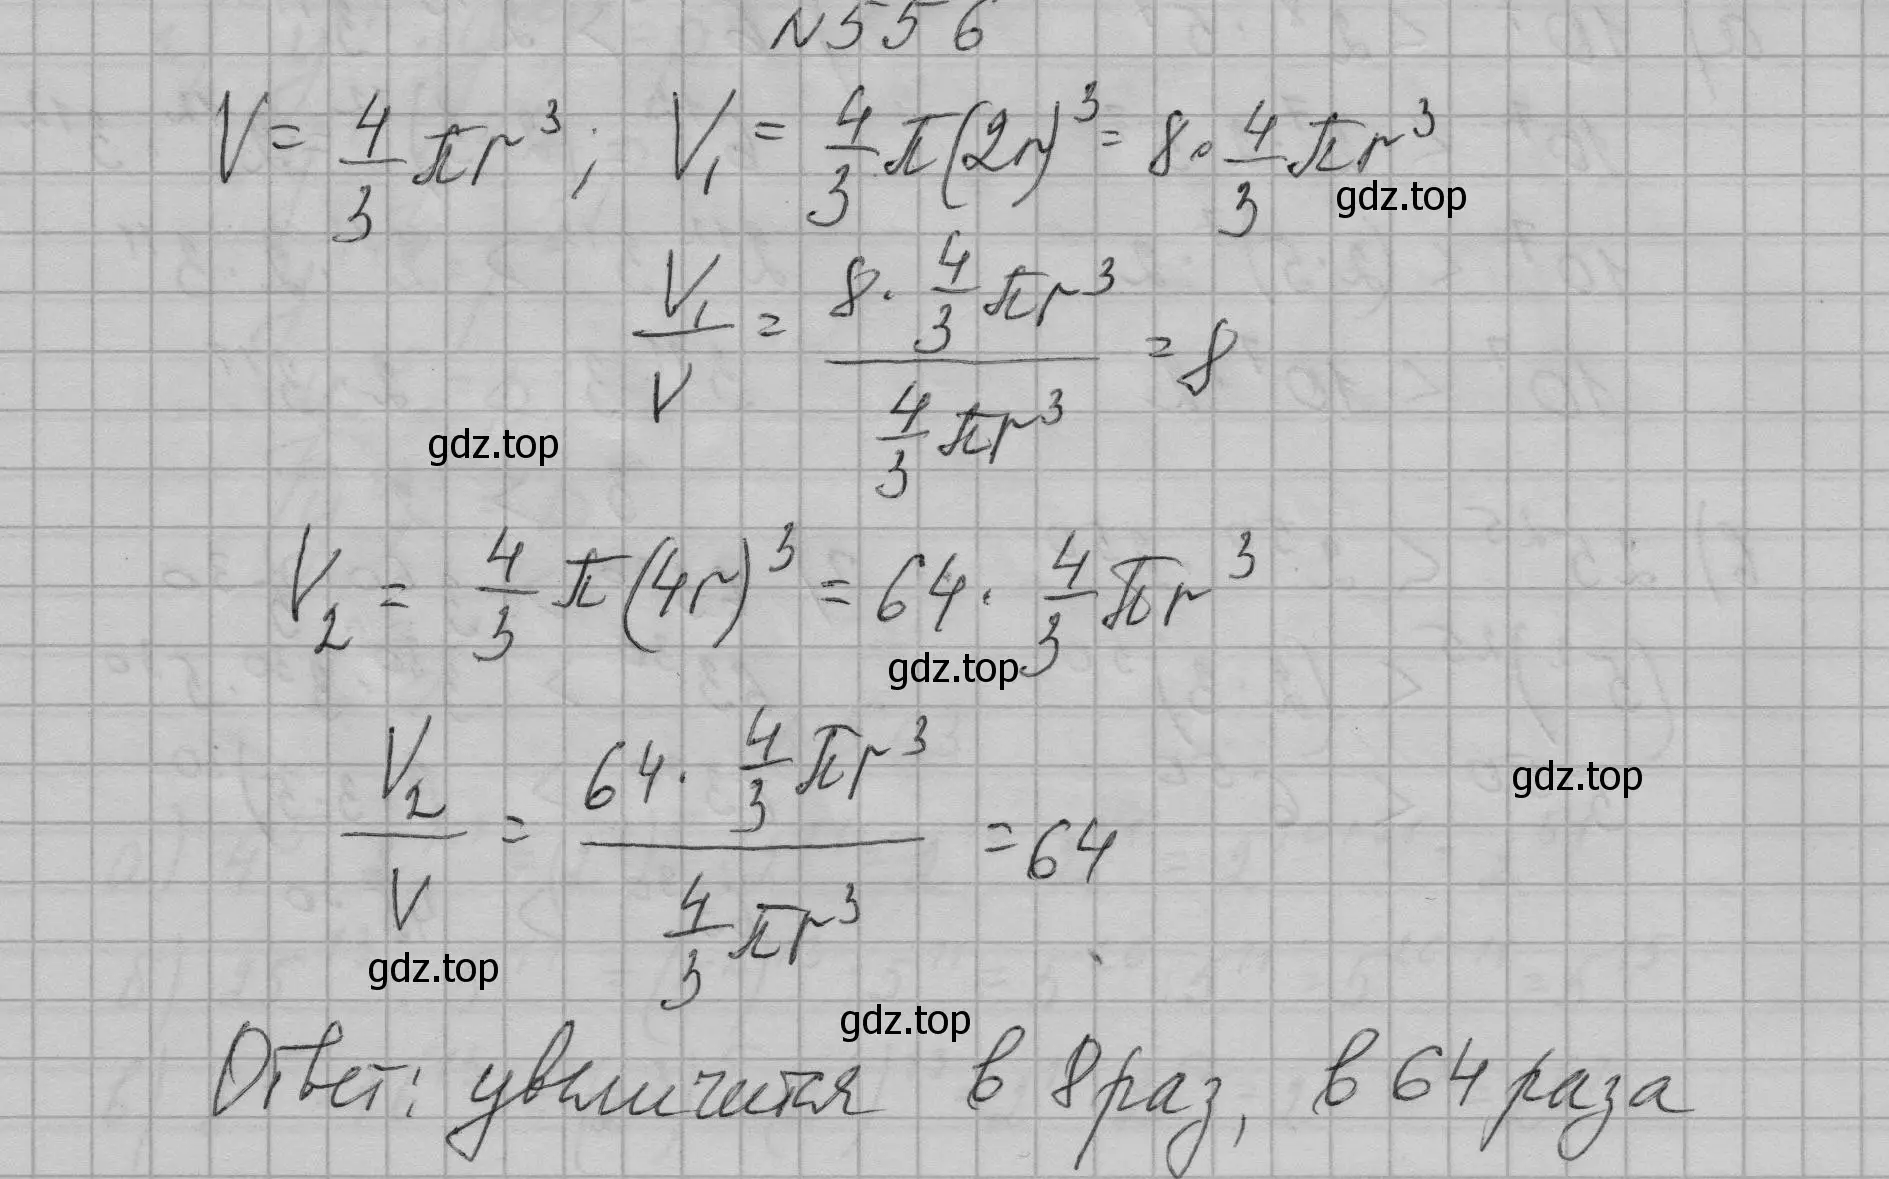 N556
V = 4/3 πr³; V₁ = 4/3 π(2r)³ = 8 · 4/3 πr³
gdz.top
V₁/V = (8 · 4/3 πr³)/(4/3 πr³) = 8
gdz.top
V₂ = 4/3 π(4r)³ = 64 · 4/3 πr³
gdz.top
V₂/V = (64 · 4/3 πr³)/(4/3 πr³) = 64
gdz.top
gdz.top
gdz.top
Ответ: увеличится в 8 раз, в 64 раза